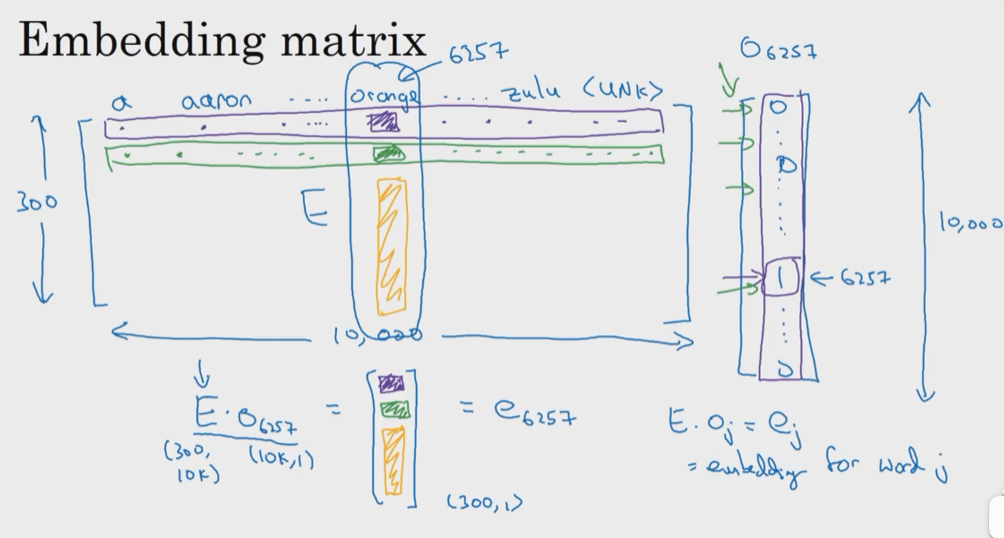 Embedding matrix
6257
O6257
a aaron .... orange .... zulu <UNK>
0
0
300
E
10,000
1 ← 6257
10,000
0
E · O6257 = = e6257
(300, 10K) (10K,1)
(300,1)
E · Oj = ej
= embedding for word j